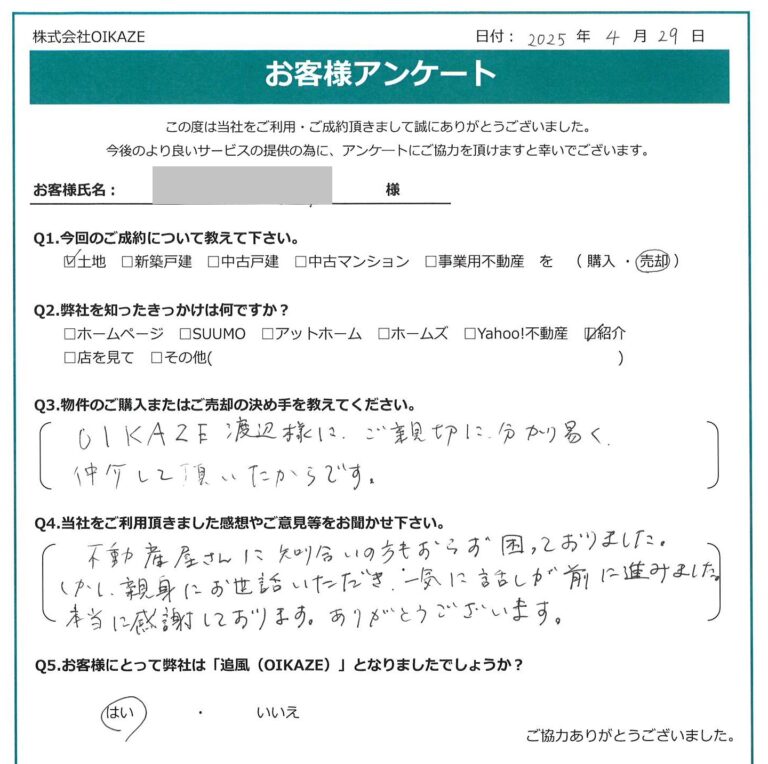 株式会社OIKAZE
日付： 2025 年 4 月 29 日
お客様アンケート
この度は当社をご利用・ご成約頂きまして誠にありがとうございました。
今後のより良いサービスの提供の為に、アンケートにご協力を頂けますと幸いでございます。
お客様氏名： 様
Q1.今回のご成約について教えて下さい。
☑土地 □新築戸建 □中古戸建 □中古マンション □事業用不動産 を （ 購入 ・ 売却 ）
Q2.弊社を知ったきっかけは何ですか？
□ホームページ □SUUMO □アットホーム □ホームズ □Yahoo!不動産 ☑紹介
□店を見て □その他( )
Q3.物件のご購入またはご売却の決め手を教えてください。
OIKAZE渡辺様に、ご親切に、分かり易く、
仲介して頂いたからです。
Q4.当社をご利用頂きました感想やご意見等をお聞かせ下さい。
不動産屋さんに知り合いの方もおらず困っておりました。
しかし、親身にお世話いただき、一気に話しが前に進みました。
本当に感謝しております。ありがとうございます。
Q5.お客様にとって弊社は「追風（OIKAZE）」となりましたでしょうか？
はい ・ いいえ
ご協力ありがとうございました。